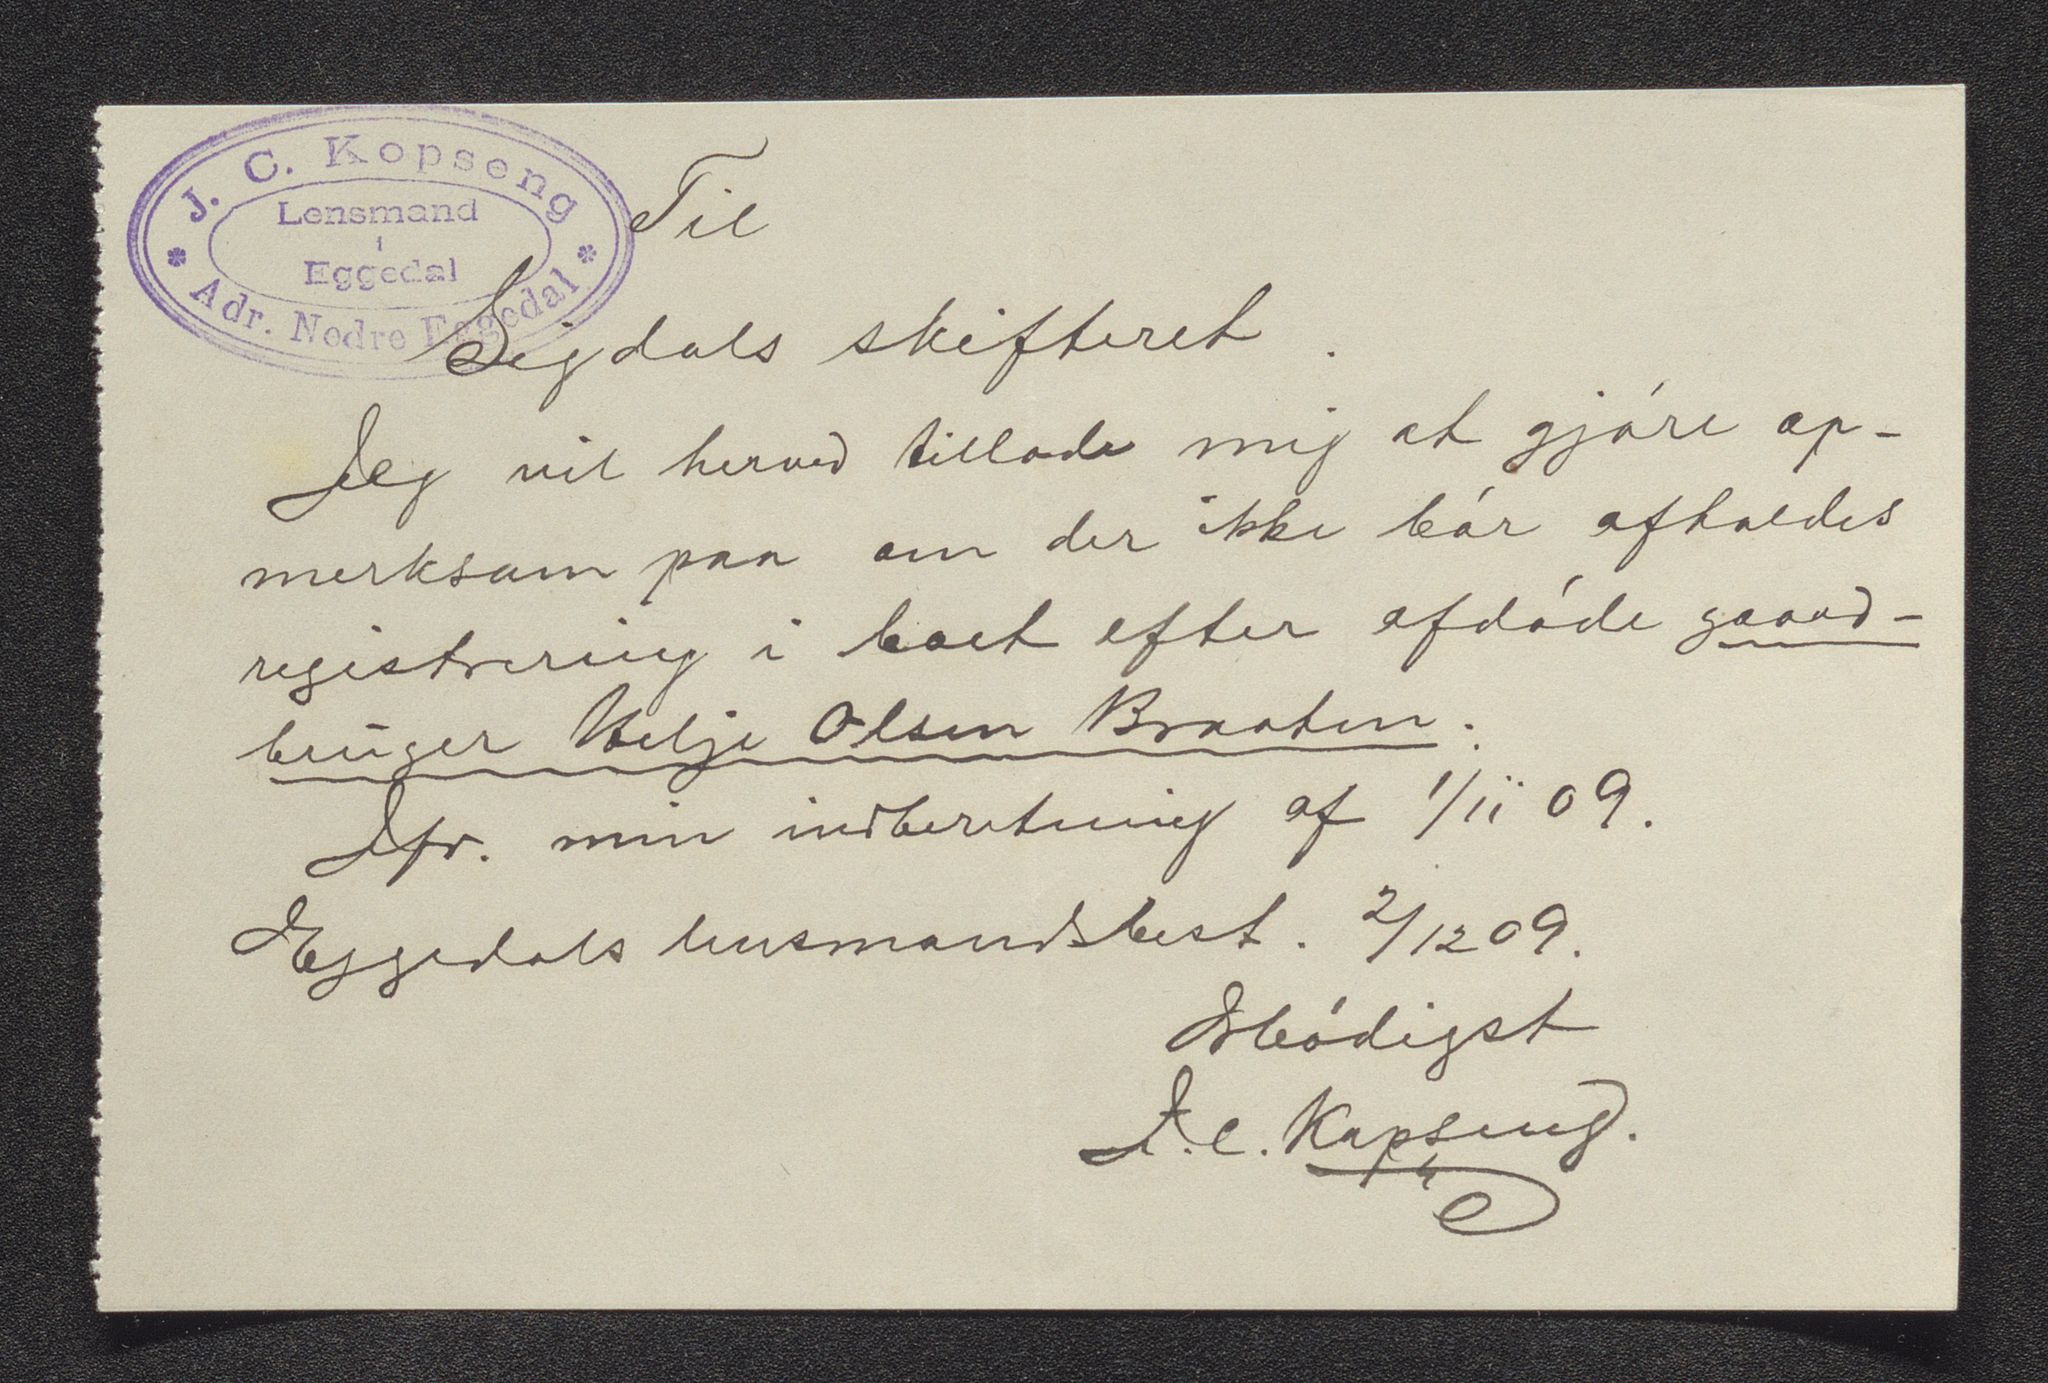 J. C. Kopseng
Lensmand
i
Eggedal
Adr. Nedre Eggedal
Til
Sigdals skifteret.
Jeg vil herved tillade mig at gjóre op-
merksom paa om der ikke bór afholdes
registrering i boet efter afdóde gaard-
bruger Helje Olsen Braaten.
Jfr. min indberetning af 1/11 09.
Eggedals lensmandsbest. 2/12 09.
Ærbódigst
J. C. Kopseng.